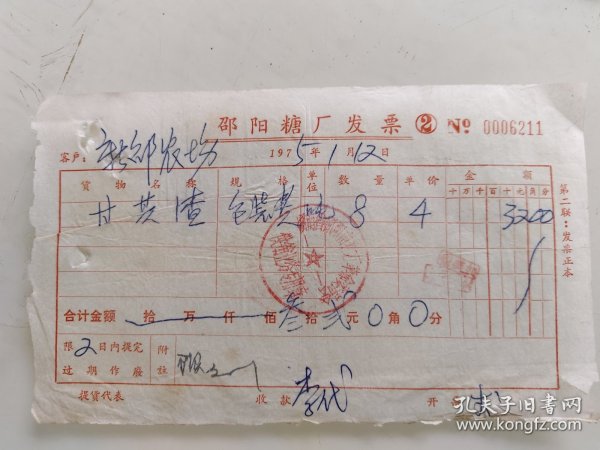 邵阳糖厂发票 ② № 0006211
客户：新邵农场 1975年1月12日
货物名称 规格 单位 数量 单价 金额
千万千百十元角分
甘蔗渣 包装 吨 8 4 3200
第二联：发票正本
合计金额 拾 万 仟 佰叁拾贰元0角0分
限2日内提完 附
过期作废 注
提货代表 收款 李代 开
孔夫子旧书网
kongfz.com